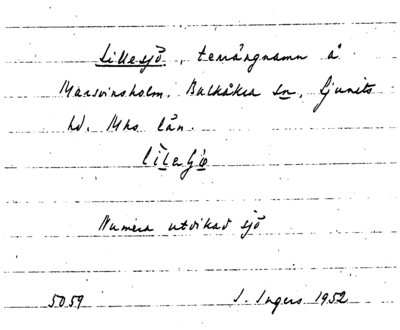 Lillesjö, terrängnamn å
Marsvinsholm, Balkåkra sn, Ljunits
hd. Mhs län.
lìleʃø
Numera utdikad sjö
5059 I. Ingers 1952